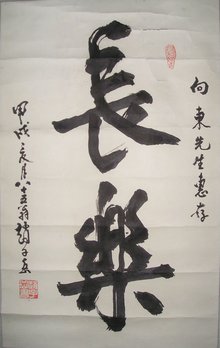 向東先生惠存
長樂
甲戌之月八十五翁趙子安